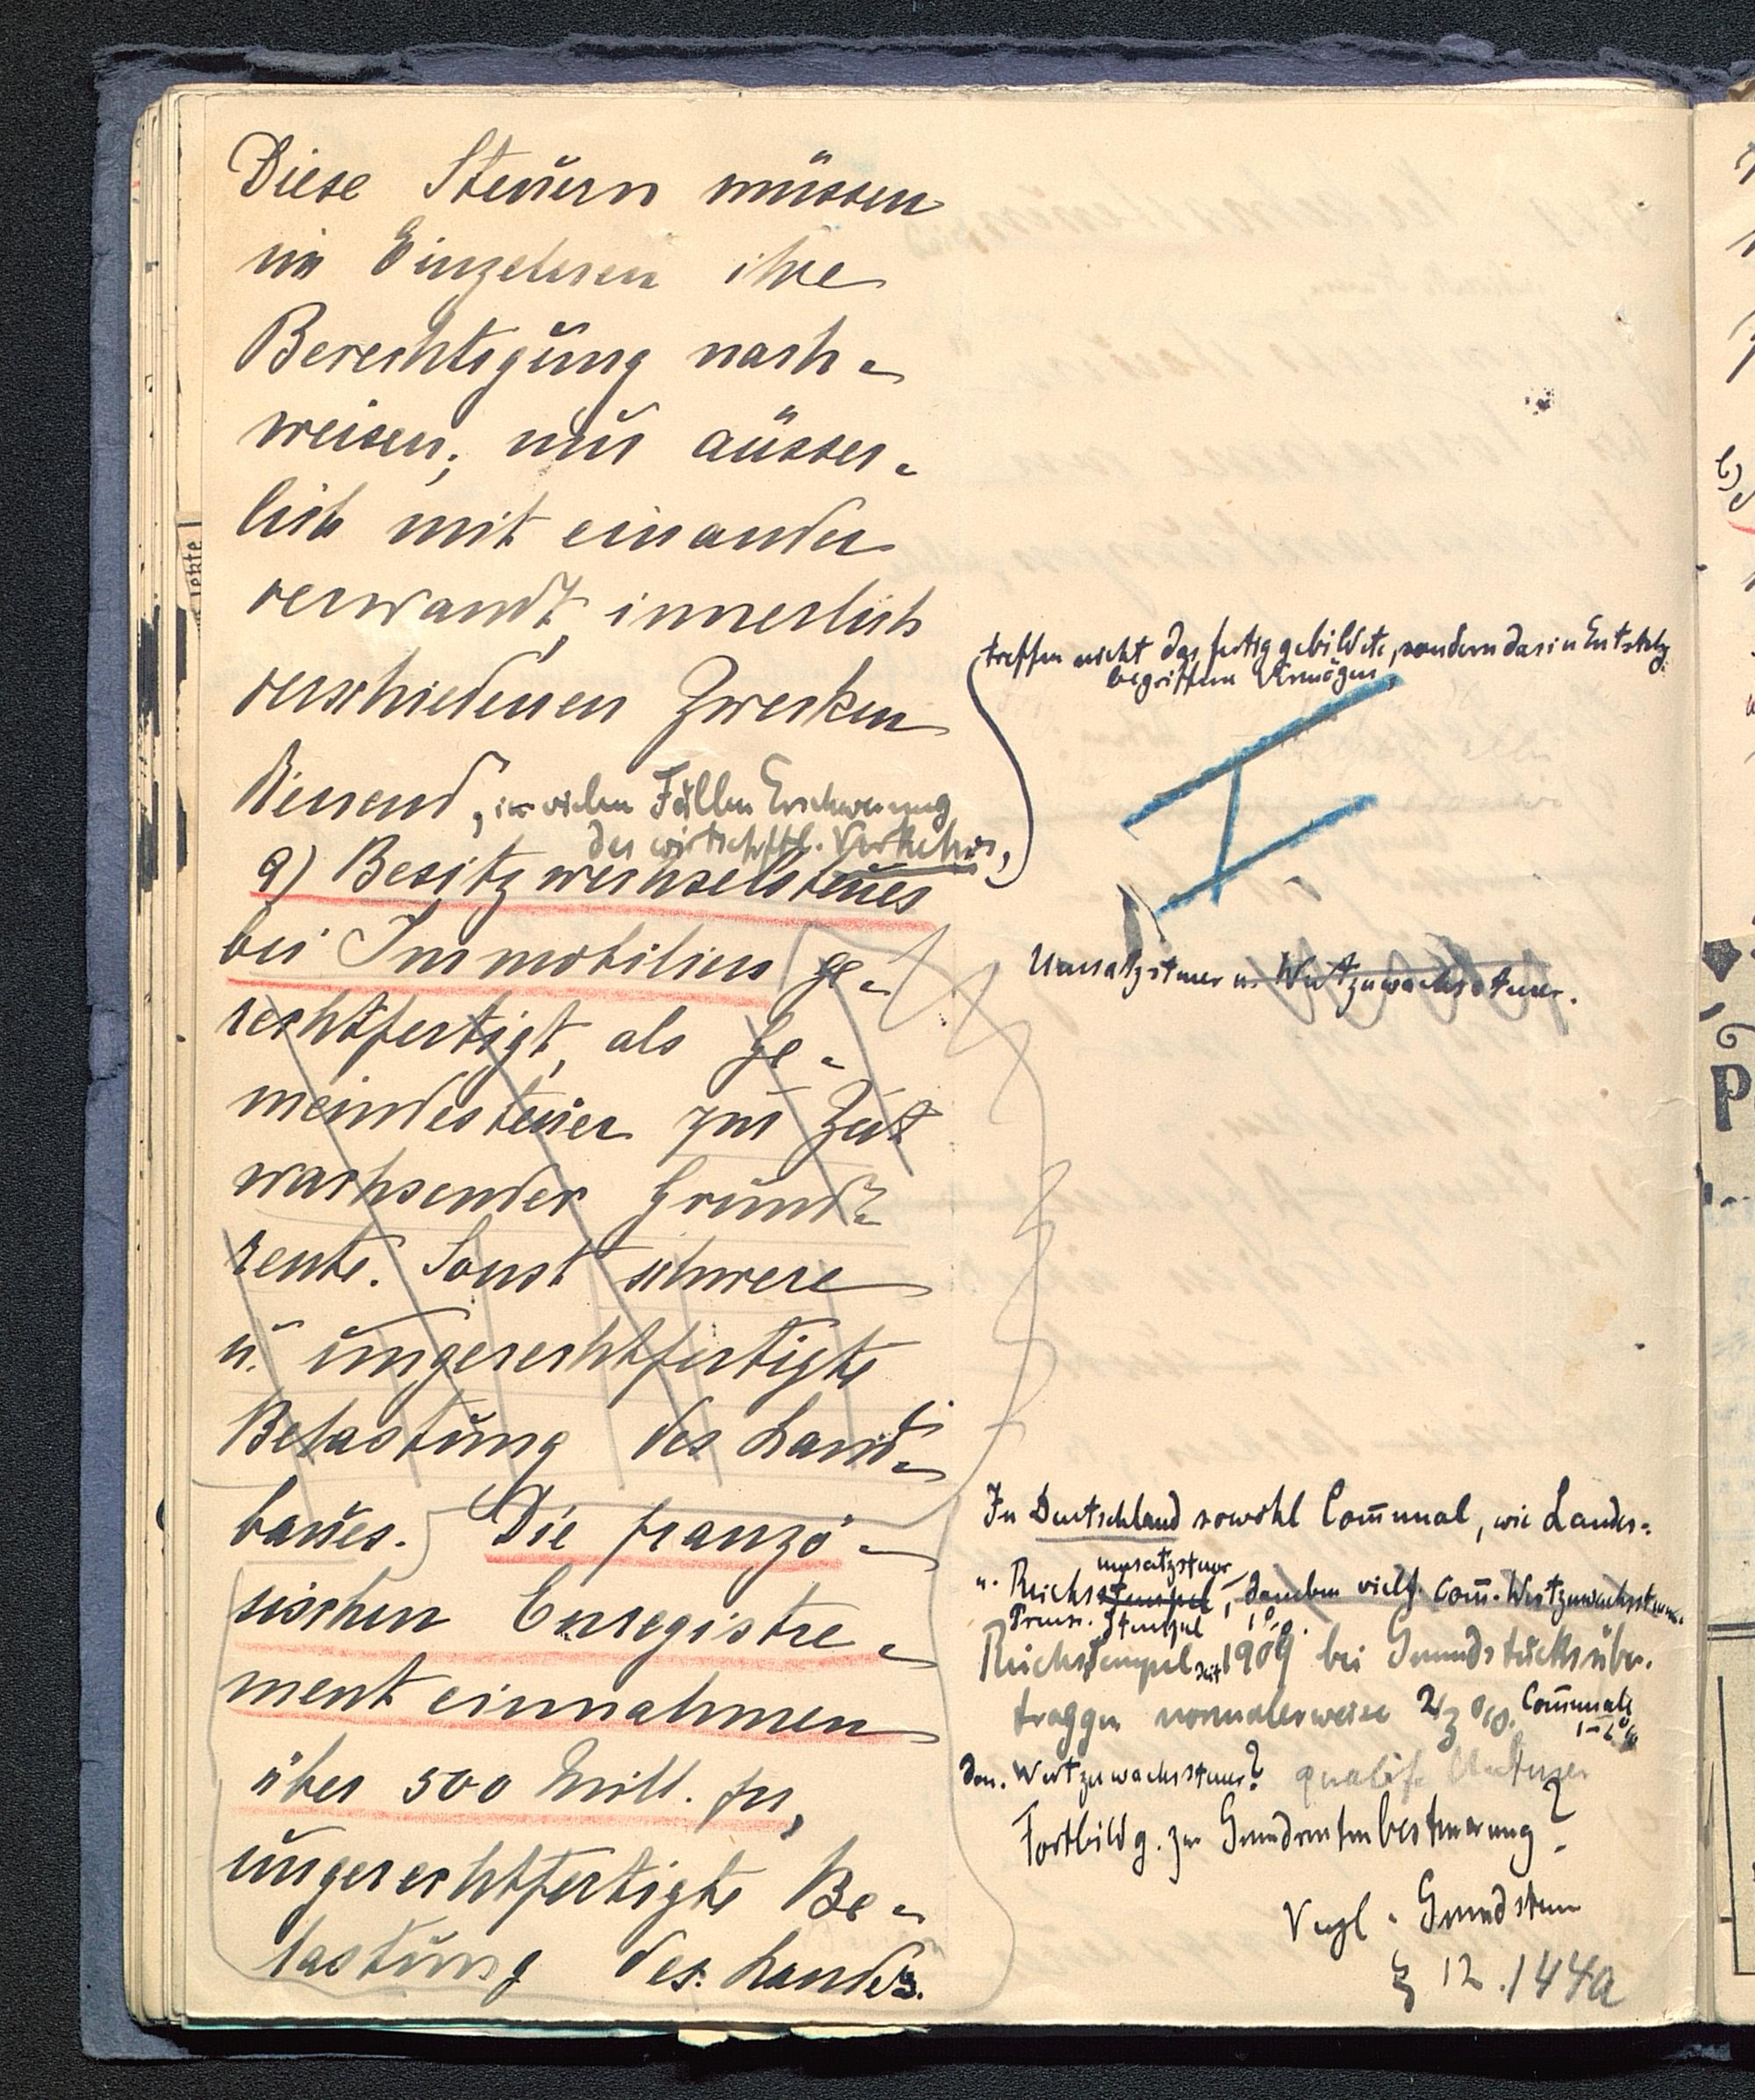 Diese Steuern müssen
im Einzelnen ihre
Berechtigung nach-
weisen; nur äusser-
lich mit einander
verwandt, innerlich
verschiedenen Zwecken
dienend, in vielen Fällen Erschwerung
des wirtschftl. Verkehrs,
a) Besitzwechselsteuer
bei Immobilien ge-
rechtfertigt, als Ge-
meindesteuer zur Zeit
wachsender Grund-
rente. Sonst schwere
u. ungerechtfertigte
Belastung des Land-
baues. Die franzö-
sischen Enregistre-
ment einnahmen
über 500 Mill. fr,
ungerechtfertigte Be-
lastung des Landes.
treffen nicht das fertig gebildete, sondern das in Entstehg.
begriffene Vermögen,
Umsatzsteuer u. Wertzuwachssteuer.
In Deutschland sowohl Com̅unal, wie Landes-
umsatzsteuer
u. Reichsstempel, daneben vielf. Com̅. Wertzuwachssteuer.
Preuss. Stempel 1%.
Reichsstempel seit 1909 bei Grundstücksüber-
traggen normalerweise 2/3 %. Com̅unale
1-2%
dan. Wertzuwachssteuer? qualif.
Fortbildg. zur Grundrentenbesteuerung?
Vergl. Grundsteuer
§ 12. 144a